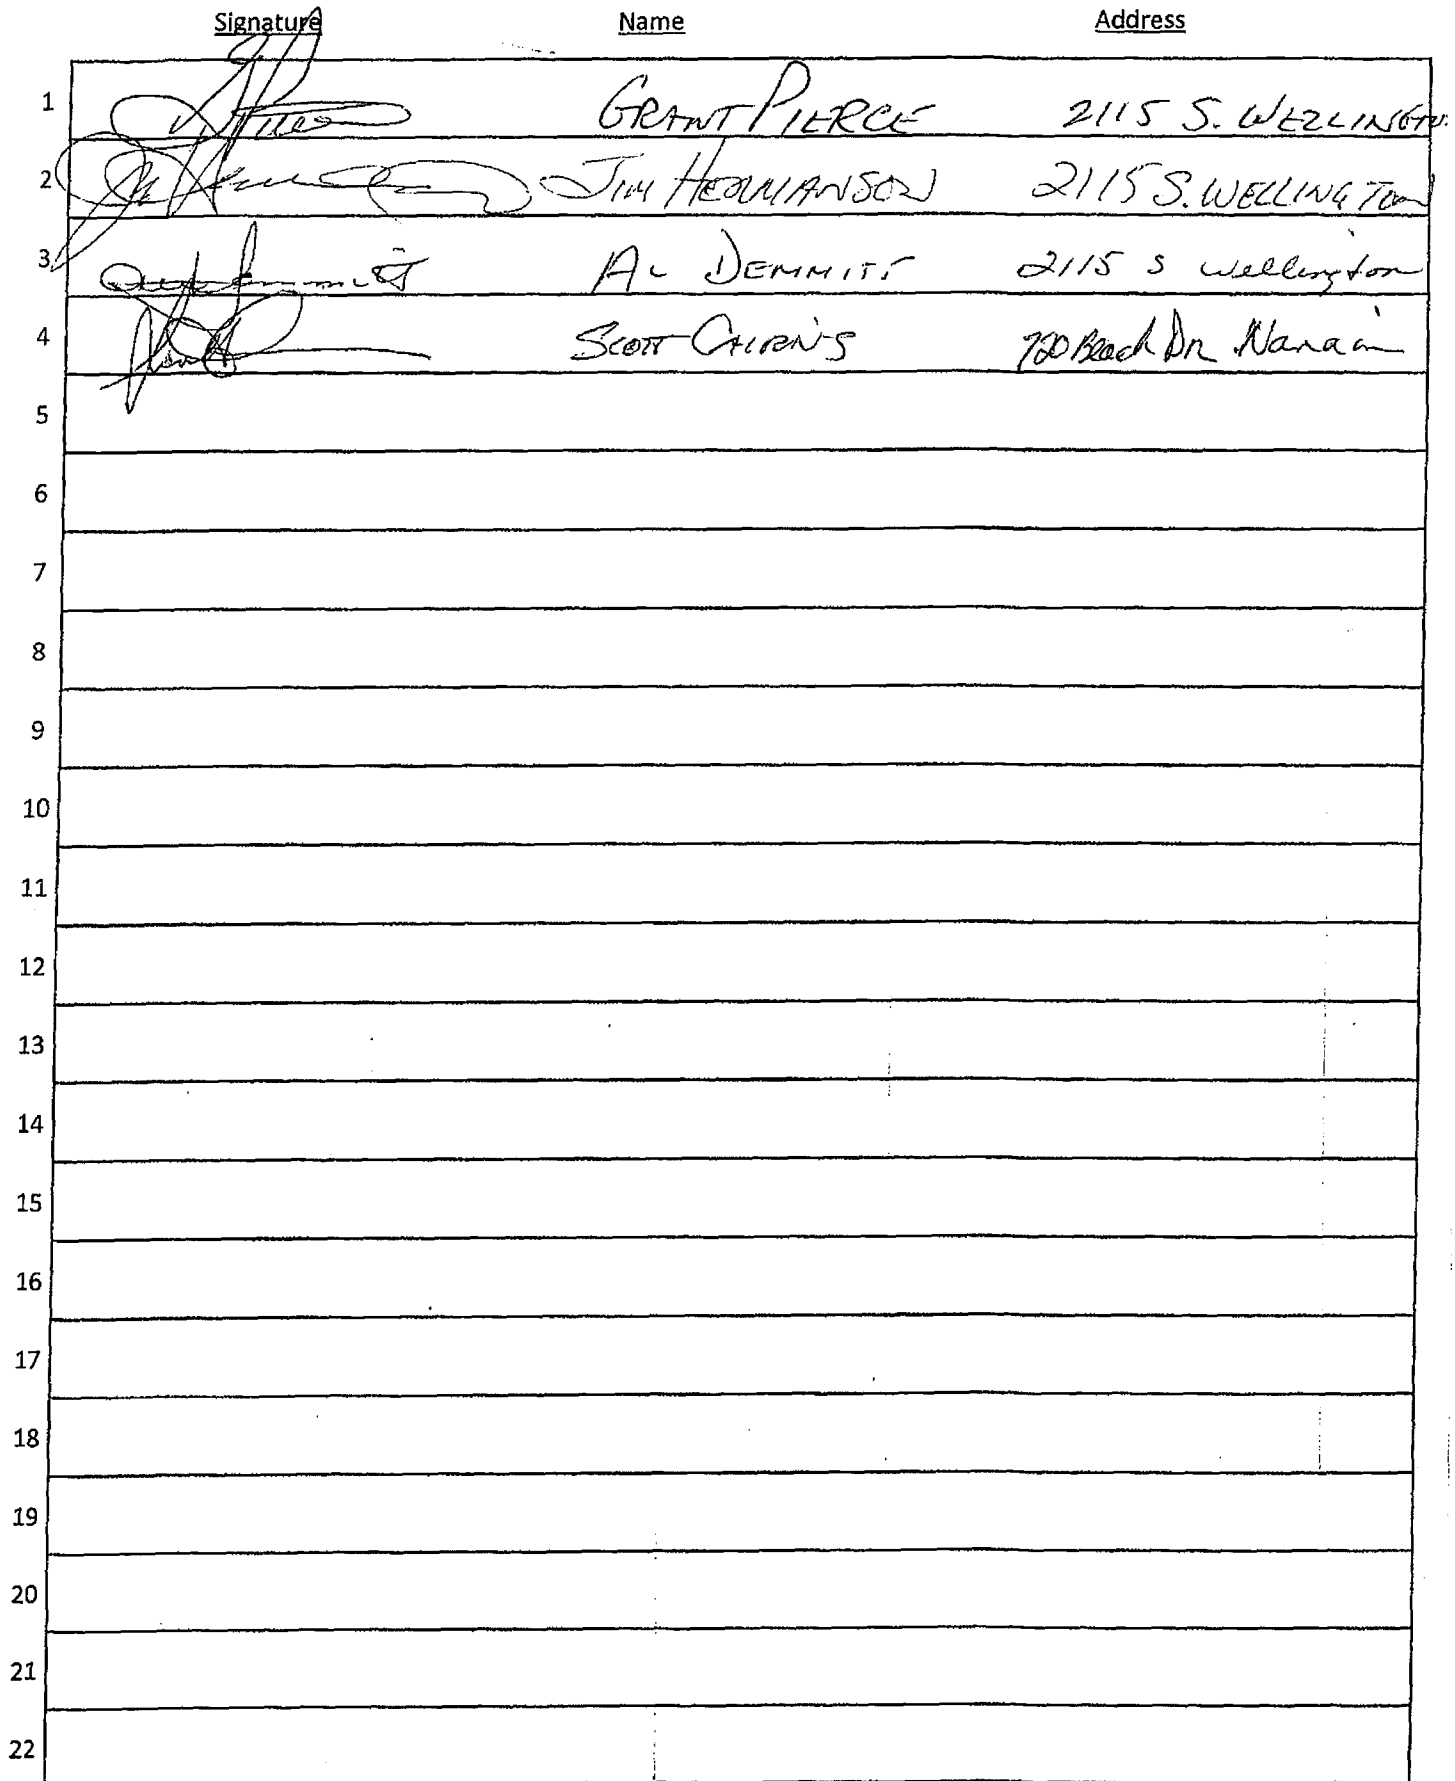 Signature Name Address
1 GRANT PIERCE 2115 S. WELLINGTON
2 JIM HERMANSON 2115 S. WELLINGTON
3 AL DEMMITT 2115 S Wellington
4 SCOTT CAIRNS 720 Beach Dr. Nanaim
5
6
7
8
9
10
11
12
13
14
15
16
17
18
19
20
21
22